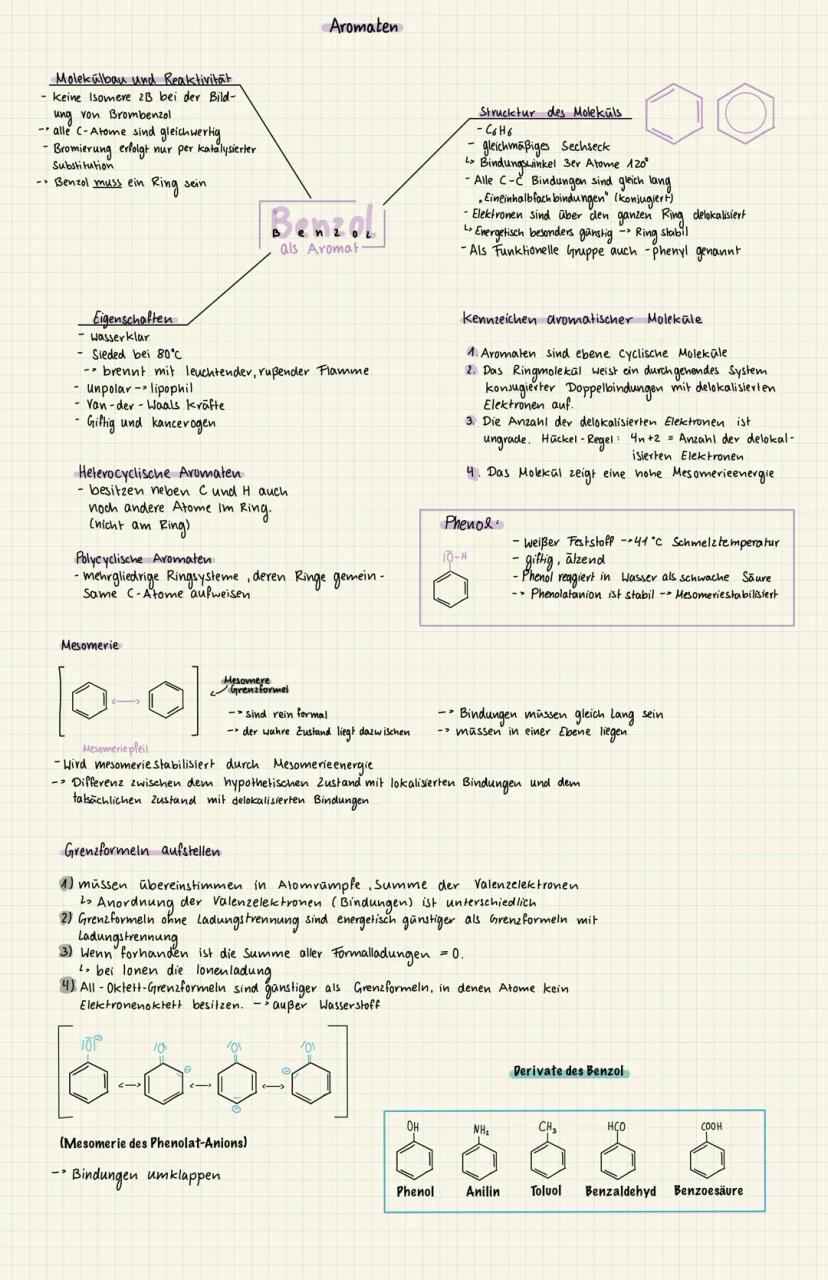 Aromaten
Molekülbau und Reaktivität
- keine Isomere zB bei der Bild-
ung von Brombenzol
-> alle C-Atome sind gleichwertig
- Bromierung erfolgt nur per katalysierter
Substitution
-> Benzol muss ein Ring sein
Strucktur des Moleküls
- C₆H₆
- gleichmäßiges Sechseck
↳ Bindungswinkel 3er Atome 120°
- Alle C-C Bindungen sind gleich lang
„Eineinhalbfachbindungen" (konjugiert)
- Elektronen sind über den ganzen Ring delokalisiert
↳ Energetisch besonders günstig -> Ring stabil
- Als Funktionelle Gruppe auch -phenyl genannt
Benzol
Benzol
als Aromat
Eigenschaften
- wasserklar
- Sieded bei 80°C
-> brennt mit leuchtender, rußender Flamme
- unpolar -> lipophil
- Van-der-Waals Kräfte
- Giftig und kancerogen
Kennzeichen aromatischer Moleküle
1. Aromaten sind ebene Cyclische Moleküle
2. Das Ringmolekül weist ein durchgehendes System
konjugierter Doppelbindungen mit delokalisierten
Elektronen auf.
3. Die Anzahl der delokalisierten Elektronen ist
ungrade. Hückel-Regel: 4n+2 = Anzahl der delokal-
isierten Elektronen
4. Das Molekül zeigt eine hohe Mesomerieenergie
Heterocyclische Aromaten
- besitzen neben C und H auch
noch andere Atome im Ring.
(nicht am Ring)
Polycyclische Aromaten
- mehrgliedrige Ringsysteme, deren Ringe gemein-
same C-Atome aufweisen
Phenol:
IO̅-H
- weißer Feststoff -> 41°C Schmelztemperatur
- giftig, äzend
- Phenol reagiert in Wasser als schwache Säure
-> Phenolatanion ist stabil -> Mesomeriestabilisiert
Mesomerie
Mesomere
Grenzformel
-> sind rein formal
-> der wahre Zustand liegt dazwischen
-> Bindungen müssen gleich lang sein
-> müssen in einer Ebene liegen
Mesomeriepfeil
- Wird mesomeriestabilisiert durch Mesomerieenergie
-> Differenz zwischen dem hypothetischen Zustand mit lokalisierten Bindungen und dem
tatsächlichen Zustand mit delokalisierten Bindungen
Grenzformeln aufstellen
1) müssen übereinstimmen in Atomrümpfe, Summe der Valenzelektronen
↳ Anordnung der Valenzelektronen (Bindungen) ist unterschiedlich
2) Grenzformeln ohne Ladungstrennung sind energetisch günstiger als Grenzformeln mit
Ladungstrennung
3) Wenn forhanden ist die Summe aller Formalladungen = 0.
↳ bei Ionen die Ionenladung
4) All-Oktett-Grenzformeln sind günstiger als Grenzformeln, in denen Atome kein
Elektronenoktett besitzen. -> außer Wasserstoff
IO̅I⊖ IOI IOI IOI
⊖ ⊖
⊖
(Mesomerie des Phenolat-Anions)
-> Bindungen umklappen
Derivate des Benzol
OH NH₂ CH₃ HCO COOH
Phenol Anilin Toluol Benzaldehyd Benzoesäure